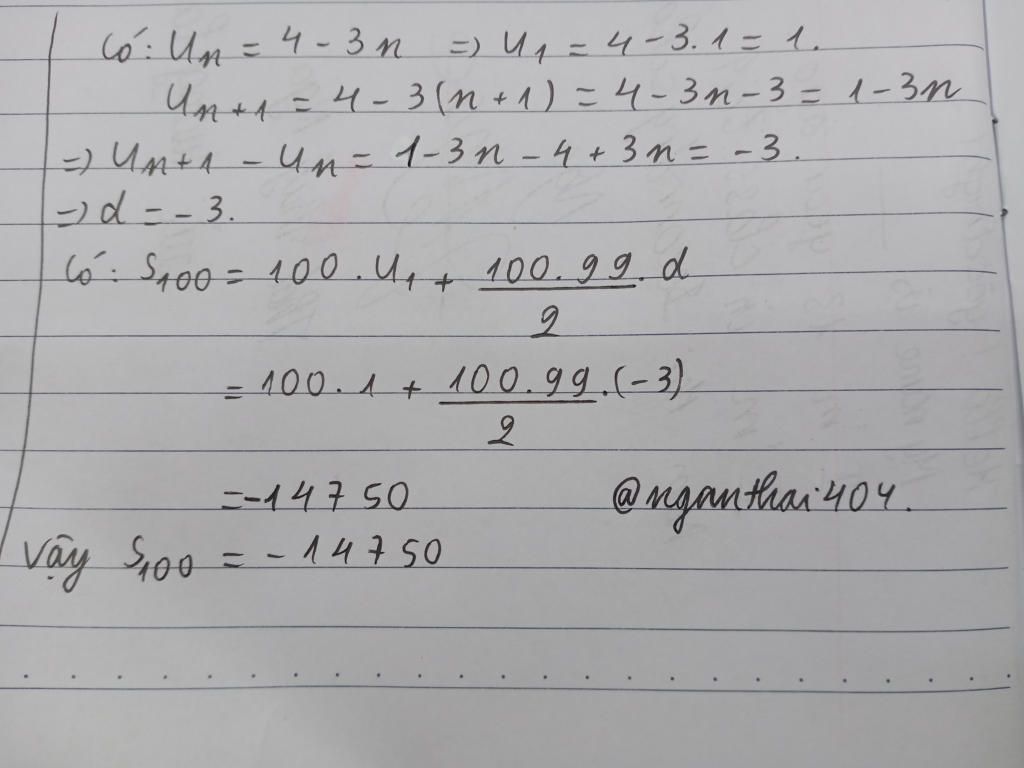 Có: Un = 4 - 3n => U1 = 4 - 3.1 = 1.
Un+1 = 4 - 3(n+1) = 4 - 3n - 3 = 1 - 3n
=> Un+1 - Un = 1 - 3n - 4 + 3n = -3.
=> d = -3.
Có: S100 = 100.U1 + 100.99/2 . d
= 100.1 + 100.99/2 .(-3)
= -14750 @nganthai404.
Vậy S100 = -14750